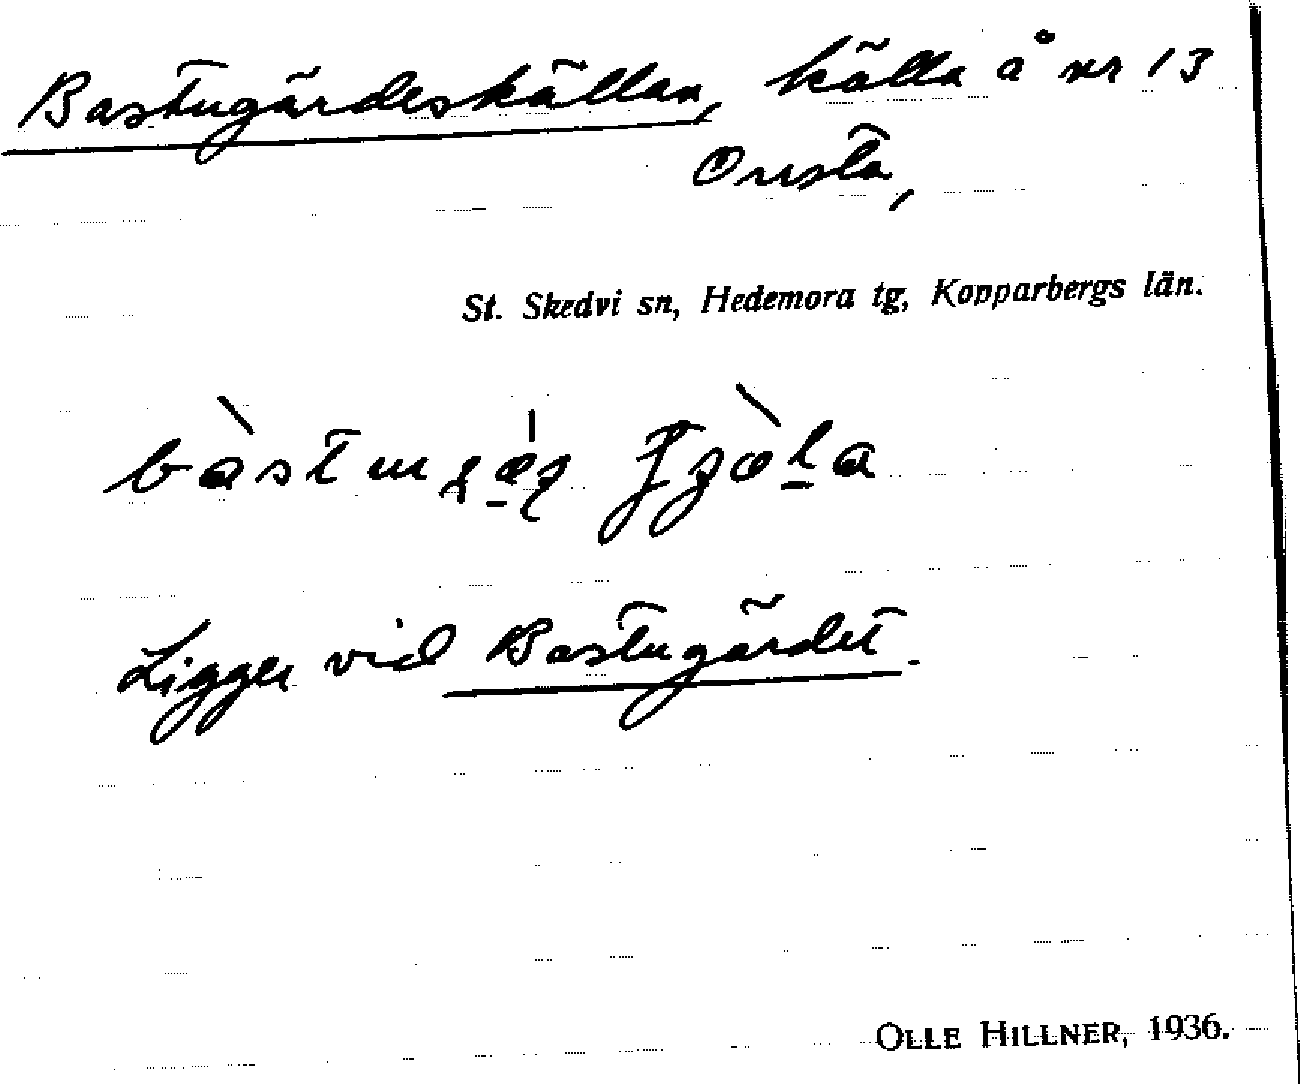 Bastugärdeskällan, källa å nr 13
Onsta,
St. Skedvi sn, Hedemora tg, Kopparbergs län.
Ligger vid Bastugärdet.
OLLE HILLNER, 1936.